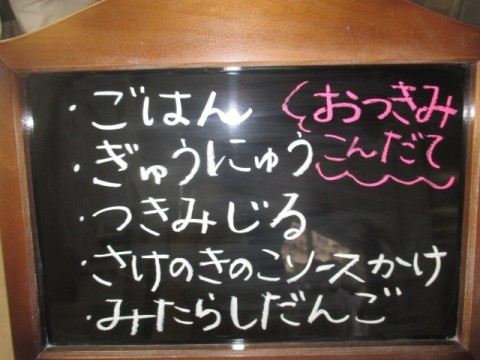 おつきみ
こんだて
・ごはん
・ぎゅうにゅう
・つきみじる
・さけのきのこソースかけ
・みたらしだんご